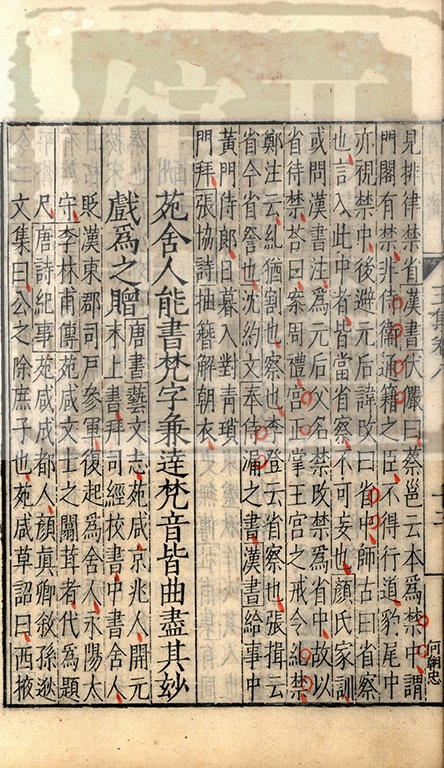 見排律禁省漢書伏儼曰蔡邕云本為禁中謂
門閣有禁非侍衛通籍之臣不得行道豹尾中
亦視禁中後避元后諱改曰省中師古曰省察
也言入此中者皆當省察不可妄也顏氏家訓
或問漢書注為元后父名禁改禁為省中故以
省待禁荅曰案周禮宮正掌王宮之戒令糺禁
鄭注云糺猶割也察也李登云省察也張揖云
省今省詧也沈約文奉侍漏之書漢書給事中
黃門侍郎日暮入對青瑣
門拜張協詩抽簪解朝衣
苑舍人能書梵字兼達梵音皆曲盡其妙
戲為之贈
唐書藝文志苑咸京兆人開元
末上書拜司經校書中書舍人
貶漢東郡司戶參軍復起為舍人永陽太
守李林甫傳苑咸文士之闒茸者代為題
尺唐詩紀事苑咸成都人顏真卿敘孫逖
文集曰公之除庶子也苑咸草詔曰西掖